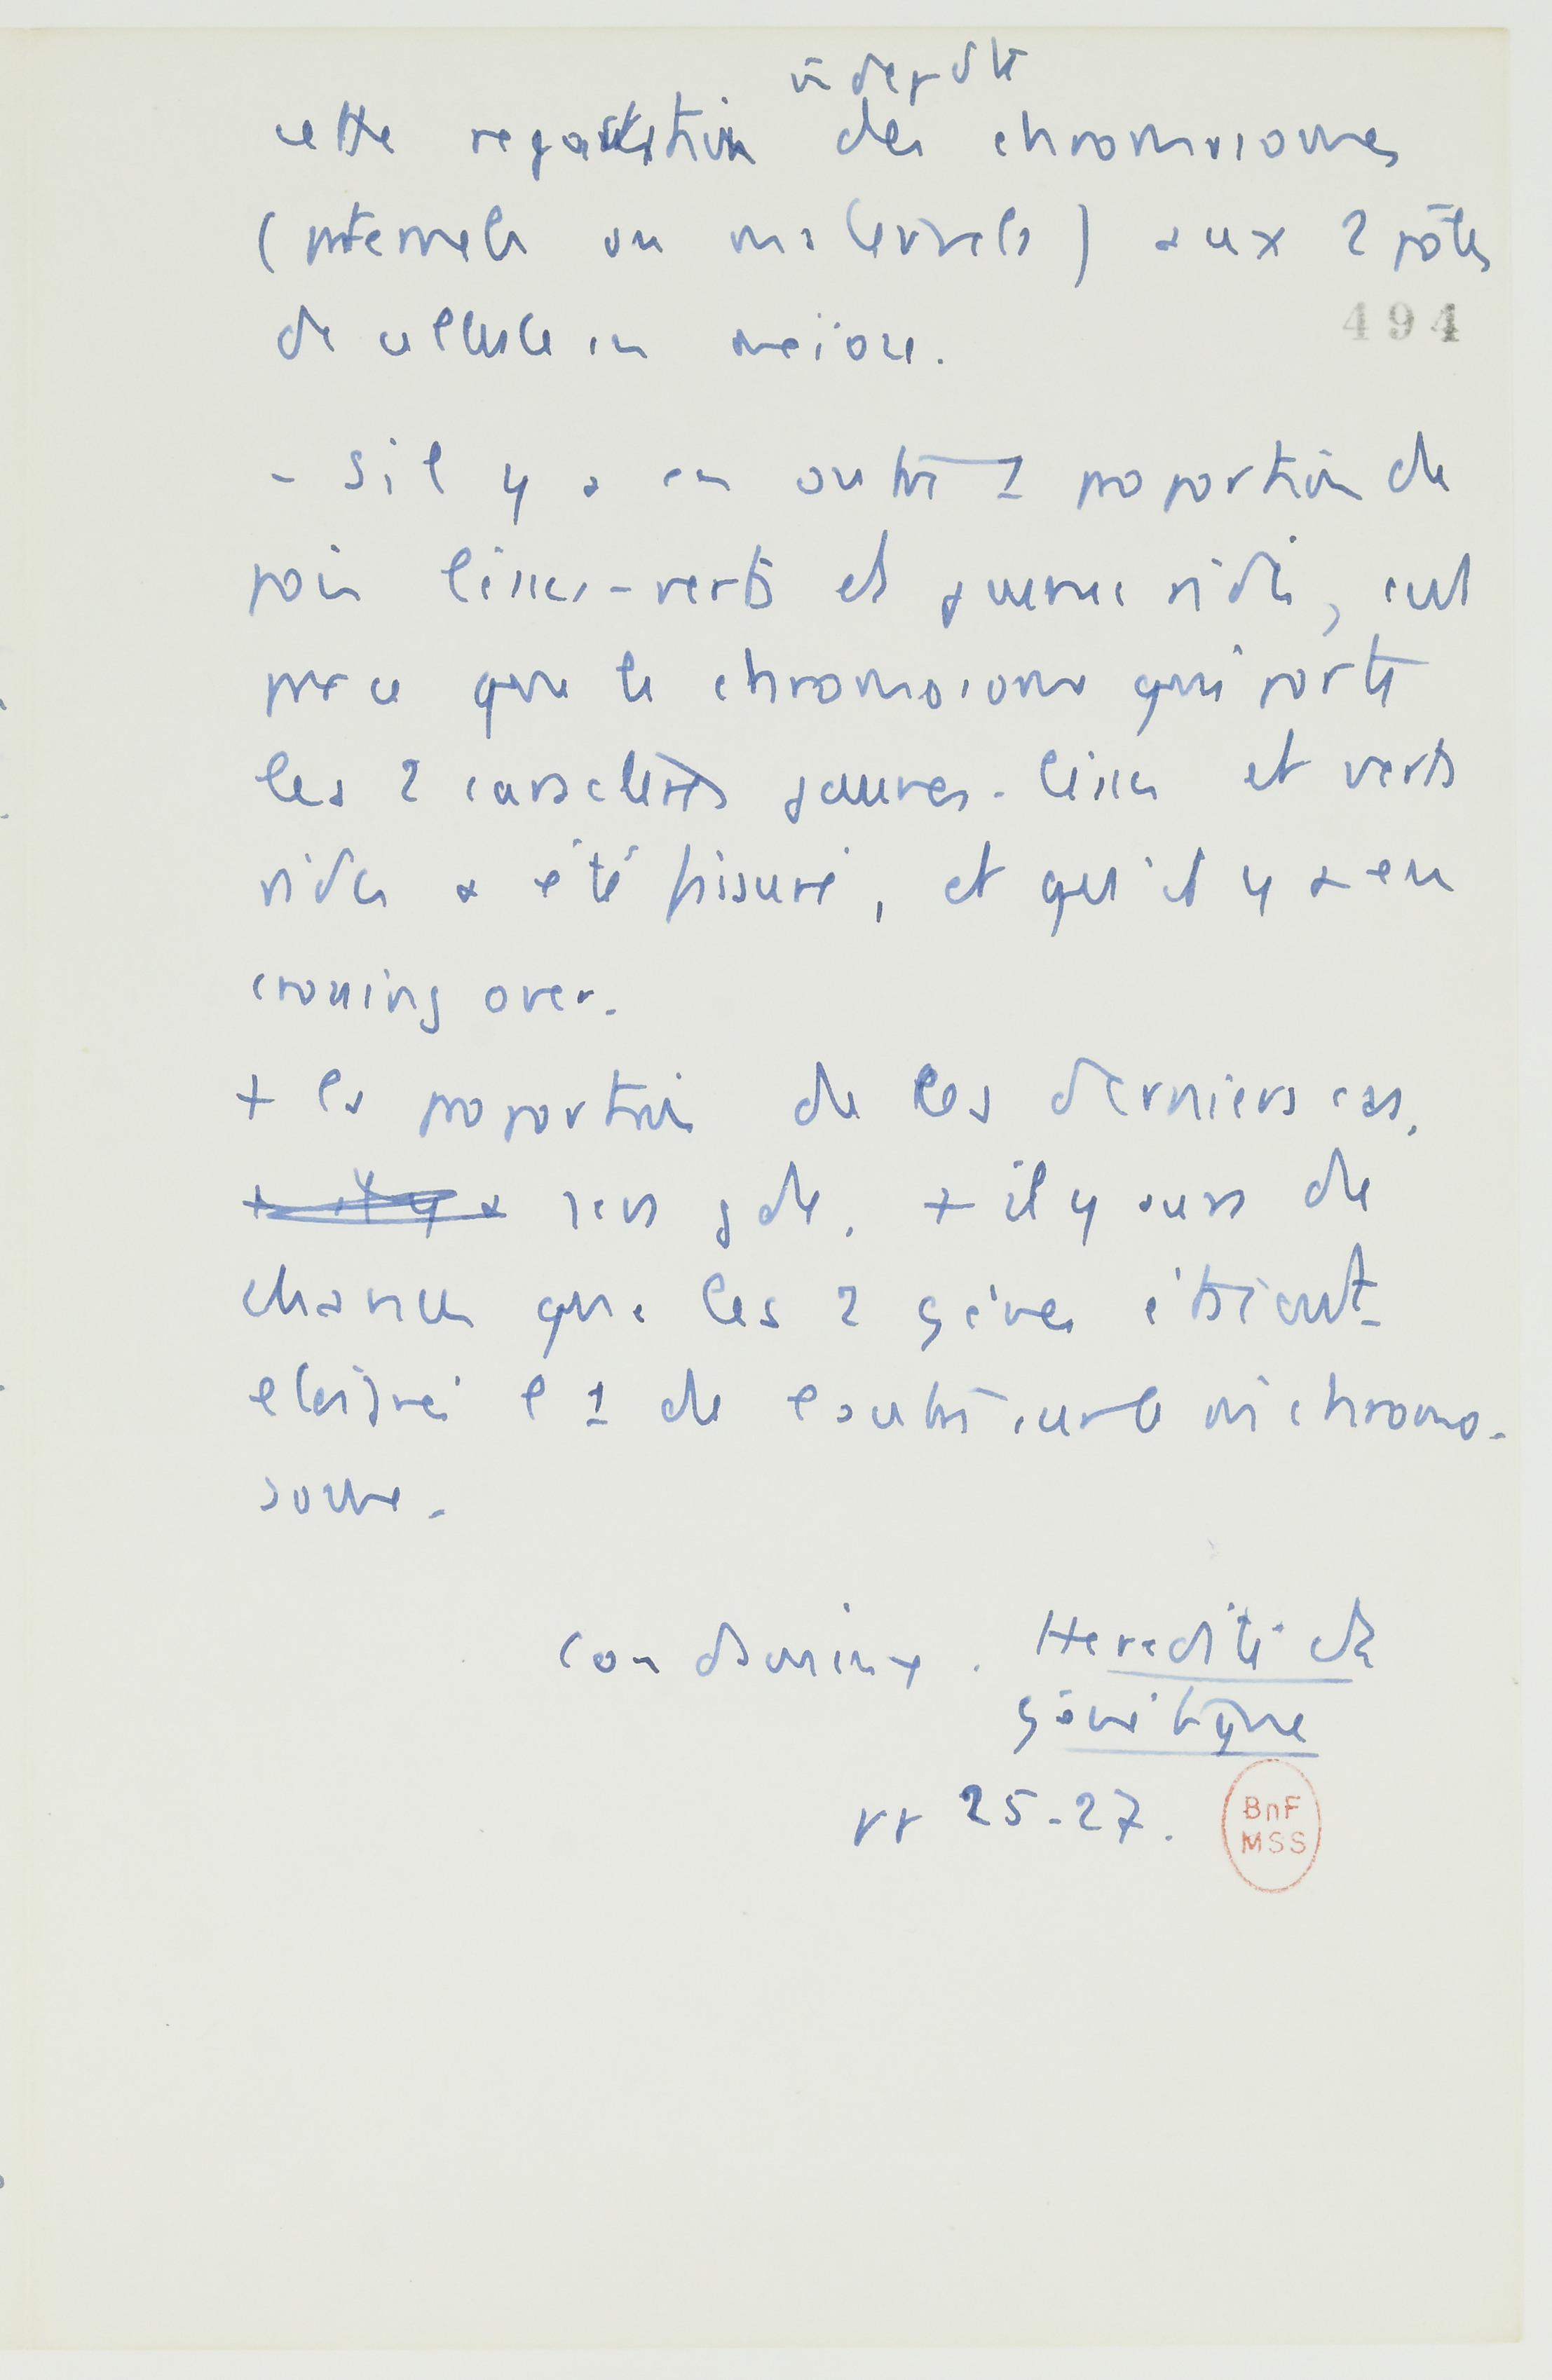 indépdte
cette repartition des chromosomes
(paternels ou maternels) aux 2 pôles
494
de cellule en meiose.
- S'il y a en outre 1 proportion de
pois lisses-verts et jaunes ridés, c'est
parce que le chromosome qui porte
les 2 caractères jaunes-lisses et verts
ridés a été fissuré, et qu'il y a eu
crossing over.
+ la proportion de ces derniers cas
+ il y a sera gde, + il y aura de
chances que les 2 gènes étaient
éloignés l'1 de l'autre sur le m chromo-
some.
Condamine. Heredité et
génétique
pp 25-27.
BnF
MSS